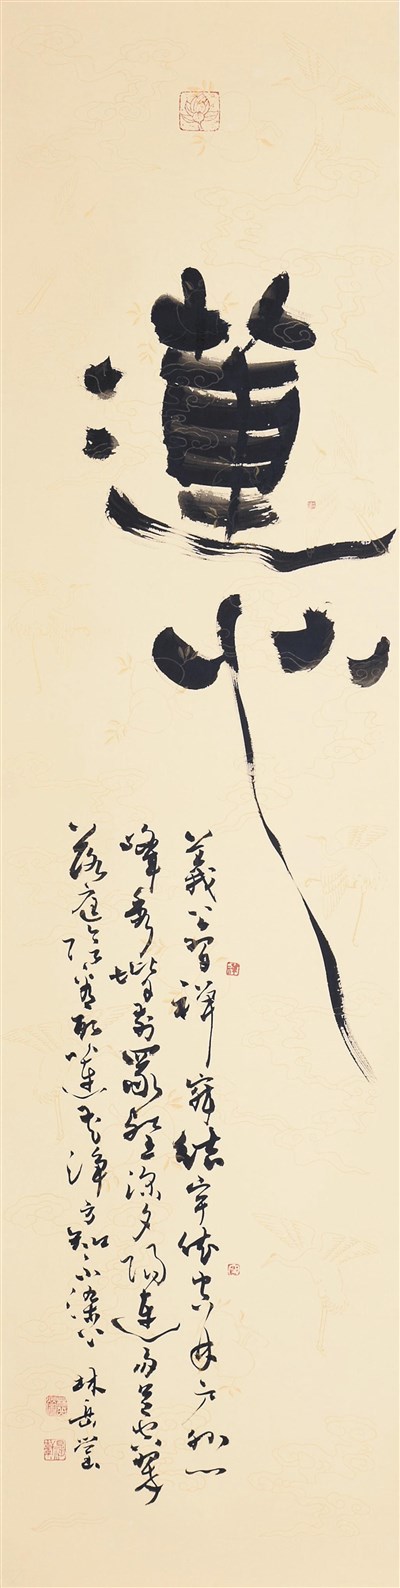 蓮心
義公習禪寂結宇依空林戶外一
峰秀堦前眾壑深夕陽連雨足空翠
落庭陰看取蓮花淨方知不染心 林岳瑩